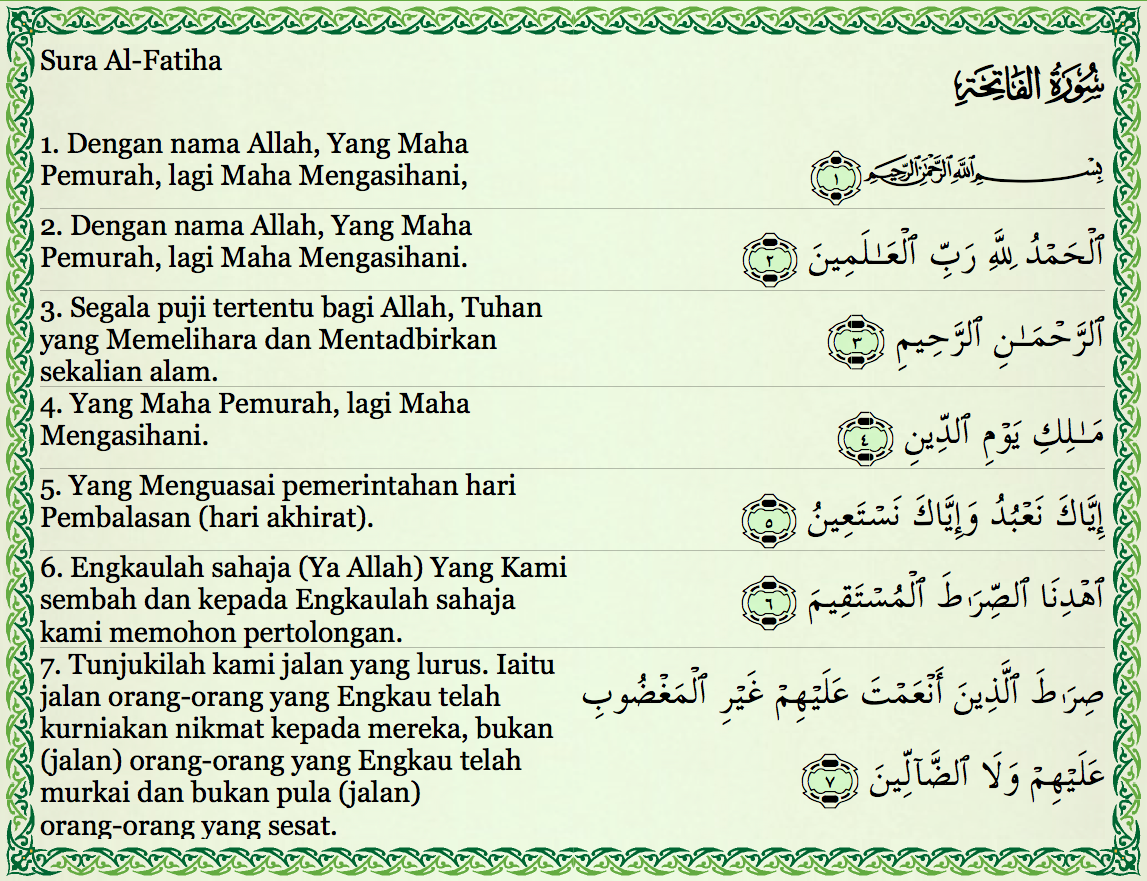 Sura Al-Fatiha
سُورَةُ الفَاتِحَةِ
1. Dengan nama Allah, Yang Maha
Pemurah, lagi Maha Mengasihani,
بِسْمِ ٱللَّهِ ٱلرَّحْمَٰنِ ٱلرَّحِيمِ ١
2. Dengan nama Allah, Yang Maha
Pemurah, lagi Maha Mengasihani.
ٱلْحَمْدُ لِلَّهِ رَبِّ ٱلْعَـٰلَمِينَ ٢
3. Segala puji tertentu bagi Allah, Tuhan
yang Memelihara dan Mentadbirkan
sekalian alam.
ٱلرَّحْمَـٰنِ ٱلرَّحِيمِ ٣
4. Yang Maha Pemurah, lagi Maha
Mengasihani.
مَـٰلِكِ يَوْمِ ٱلدِّينِ ٤
5. Yang Menguasai pemerintahan hari
Pembalasan (hari akhirat).
إِيَّاكَ نَعْبُدُ وَإِيَّاكَ نَسْتَعِينُ ٥
6. Engkaulah sahaja (Ya Allah) Yang Kami
sembah dan kepada Engkaulah sahaja
kami memohon pertolongan.
ٱهْدِنَا ٱلصِّرَٰطَ ٱلْمُسْتَقِيمَ ٦
7. Tunjukilah kami jalan yang lurus. Iaitu
jalan orang-orang yang Engkau telah
kurniakan nikmat kepada mereka, bukan
(jalan) orang-orang yang Engkau telah
murkai dan bukan pula (jalan)
orang-orang yang sesat.
صِرَٰطَ ٱلَّذِينَ أَنْعَمْتَ عَلَيْهِمْ غَيْرِ ٱلْمَغْضُوبِ
عَلَيْهِمْ وَلَا ٱلضَّآلِّينَ ٧